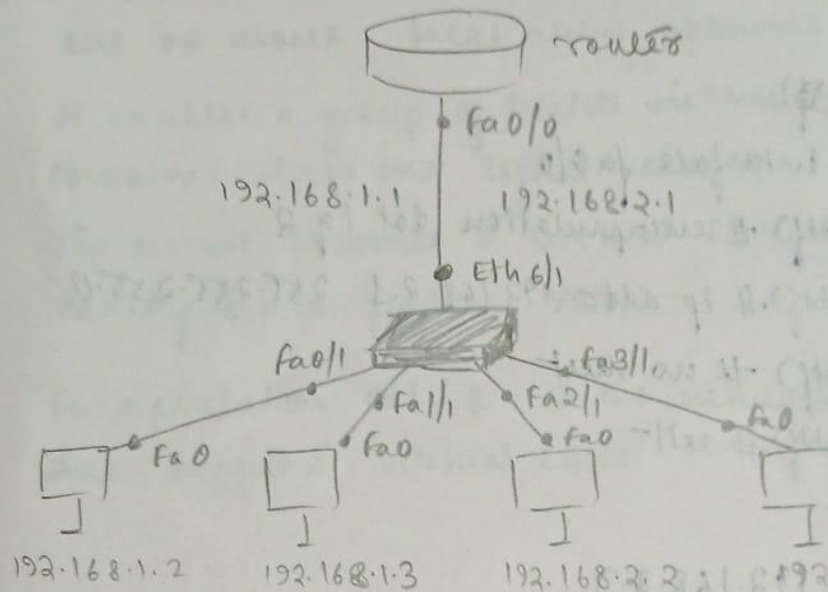 router
Fa0/0
192.168.1.1 192.168.2.1
Eth6/1
Fa0/1 Fa3/1
Fa1/1 Fa2/1
Fa0 Fa0 Fa0 Fa0
192.168.1.2 192.168.1.3 192.168.2.2 192